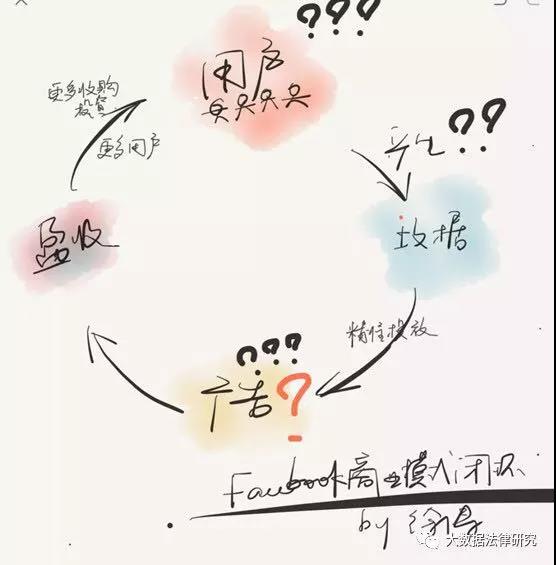 ???
用户
更多收购
投资
更多用户
产生??
盈收
数据
精准投放
???
广告?
Facebook商业模式闭环
by 徐
大数据法律研究